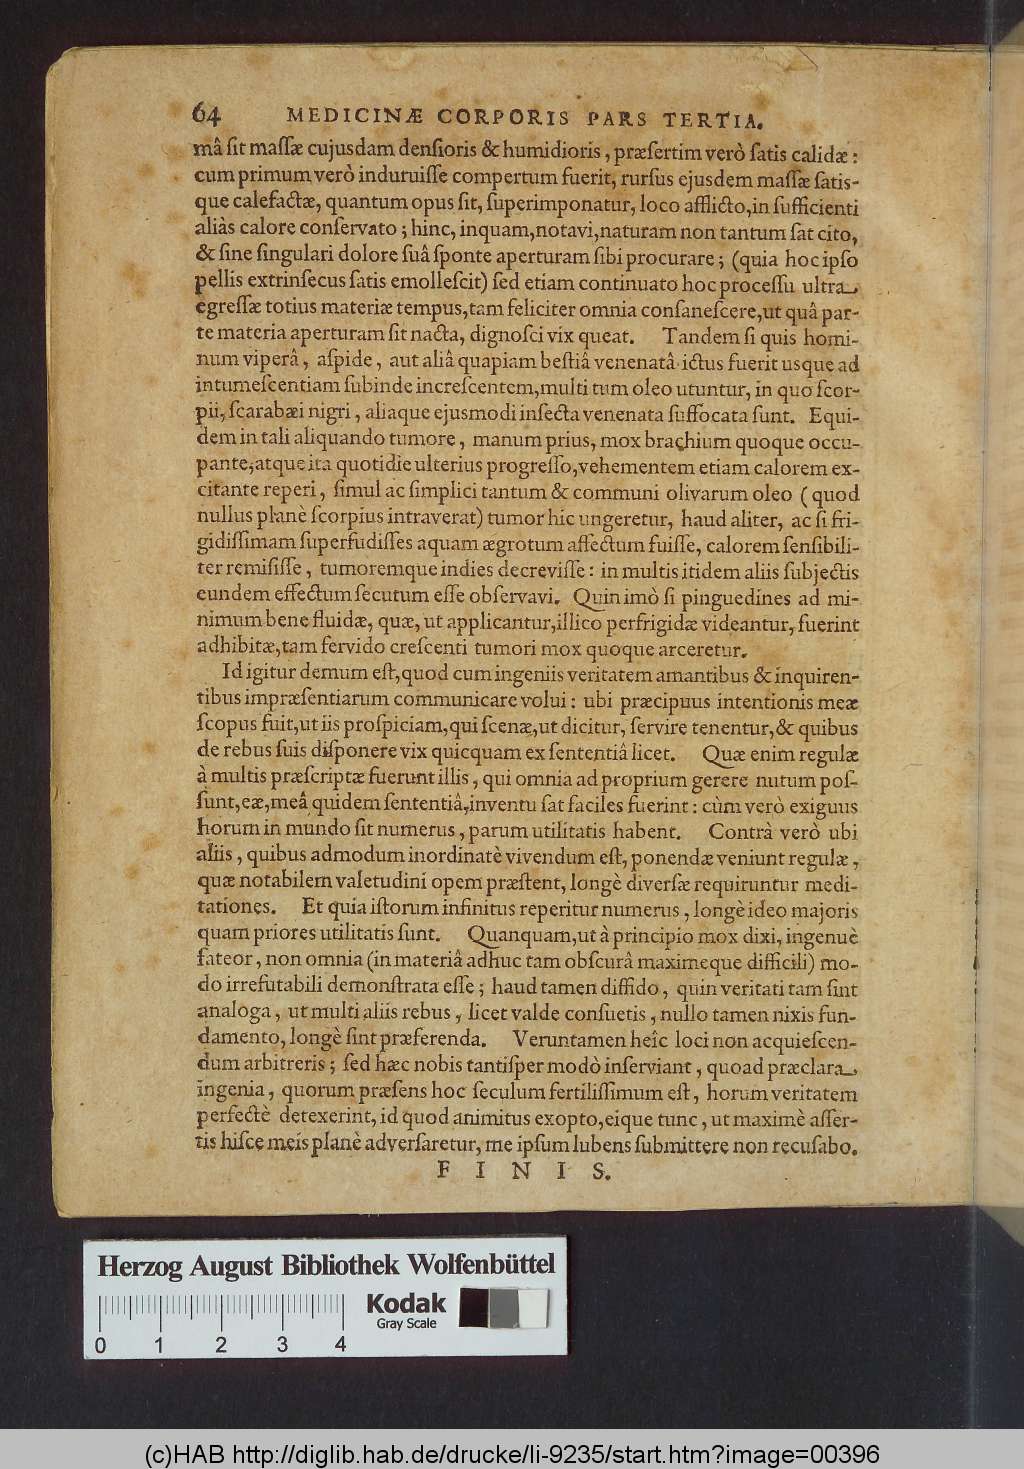 64 MEDICINÆ CORPORIS PARS TERTIA.
mâ ſit maſſæ cujusdam denſioris & humidioris, præſertim verò ſatis calidæ:
cum primum verò induruiſſe compertum fuerit, rurſus ejusdem maſſæ ſatis-
que calefactæ, quantum opus ſit, ſuperimponatur, loco afflicto, in ſufficienti
aliàs calore conſervato; hinc, inquam, notavi, naturam non tantum ſat cito,
& ſine ſingulari dolore ſuâ ſponte aperturam ſibi procurare; (quia hoc ipſo
pellis extrinſecus ſatis emolleſcit) ſed etiam continuato hoc proceſſu ultra
egreſſæ totius materiæ tempus, tam feliciter omnia conſaneſcere, ut quâ par-
te materia aperturam ſit nacta, dignoſci vix queat. Tandem ſi quis homi-
num viperâ, aſpide, aut aliâ quapiam beſtiâ venenatâ ictus fuerit usque ad
intumeſcentiam ſubinde increſcentem, multi tum oleo utuntur, in quo ſcor-
pii, ſcarabæi nigri, aliaque ejusmodi inſecta venenata ſuffocata ſunt. Equi-
dem in tali aliquando tumore, manum prius, mox brachium quoque occu-
pante, atque ita quotidie ulterius progreſſo, vehementem etiam calorem ex-
citante reperi, ſimul ac ſimplici tantum & communi olivarum oleo (quod
nullus planè ſcorpius intraverat) tumor hic ungeretur, haud aliter, ac ſi fri-
gidiſſimam ſuperfudiſſes aquam ægrotum affectum fuiſſe, calorem ſenſibili-
ter remiſiſſe, tumoremque indies decreviſſe: in multis itidem aliis ſubjectis
eundem effectum ſecutum eſſe obſervavi. Quin imò ſi pinguedines ad mi-
nimum bene fluidæ, quæ, ut applicantur, illico perfrigidæ videantur, fuerint
adhibitæ, tam fervido creſcenti tumori mox quoque arceretur.
Id igitur demum eſt, quod cum ingeniis veritatem amantibus & inquiren-
tibus impræſentiarum communicare volui: ubi præcipuus intentionis meæ
ſcopus fuit, ut iis proſpiciam, qui ſcenæ, ut dicitur, ſervire tenentur, & quibus
de rebus ſuis diſponere vix quicquam ex ſententiâ licet. Quæ enim regulæ
à multis præſcriptæ fuerunt illis, qui omnia ad proprium gerere nutum poſ-
ſunt, eæ, meâ quidem ſententiâ, inventu ſat faciles fuerint: cùm verò exiguus
horum in mundo ſit numerus, parum utilitatis habent. Contrà verò ubi
aliis, quibus admodum inordinatè vivendum eſt, ponendæ veniunt regulæ,
quæ notabilem valetudini opem præſtent, longè diverſæ requiruntur medi-
tationes. Et quia iſtorum infinitus reperitur numerus, longè ideo majoris
quam priores utilitatis ſunt. Quanquam, ut à principio mox dixi, ingenuè
fateor, non omnia (in materiâ adhuc tam obſcurâ maximeque difficili) mo-
do irrefutabili demonſtrata eſſe; haud tamen diffido, quin veritati tam ſint
analoga, ut multi aliis rebus, licet valde conſuetis, nullo tamen nixis fun-
damento, longè ſint præferenda. Veruntamen heîc loci non acquieſcen-
dum arbitreris; ſed hæc nobis tantiſper modò inſerviant, quoad præclara
ingenia, quorum præſens hoc ſeculum fertiliſſimum eſt, horum veritatem
perfectè detexerint, id quod animitus exopto, eique tunc, ut maximè aſſer-
tis hiſce meis planè adverſaretur, me ipſum lubens ſubmittere non recuſabo.
FINIS.
Herzog August Bibliothek Wolfenbüttel
Kodak
Gray Scale
0 1 2 3 4
(c)HAB http://diglib.hab.de/drucke/li-9235/start.htm?image=00396